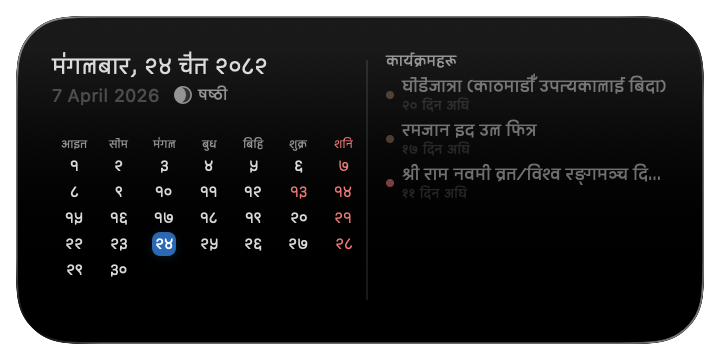 मंगलबार, २४ चैत २०८२
7 April 2026 षष्ठी
आइत सोम मंगल बुध बिहि शुक्र शनि
१ २ ३ ४ ५ ६ ७
८ ९ १० ११ १२ १३ १४
१५ १६ १७ १८ १९ २० २१
२२ २३ २४ २५ २६ २७ २८
२९ ३०
कार्यक्रमहरू
घोडेजात्रा (काठमाडौँ उपत्यकालाई बिदा)
२० दिन अघि
रमजान इद उल फित्र
१७ दिन अघि
श्री राम नवमी व्रत/विश्व रङ्गमञ्च दि...
११ दिन अघि